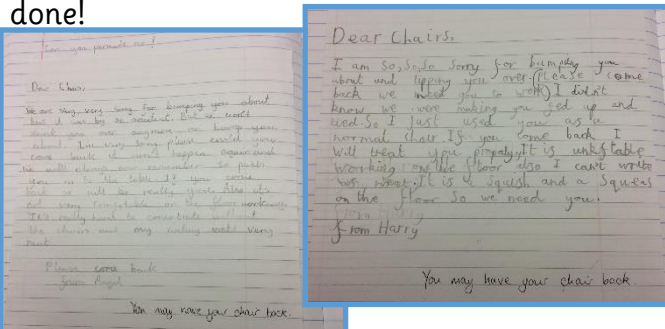 done!
Can you persuade me!
Dear Chairs,
We are very very sorry for bumping you about
but it was by accident. But we won't
you over anymore or bump you
about. I'm very sorry please could you
come back it won't happen again and
we will always remember to push
you in to the table if you come
back we will be really good. Also it's
not very comfortable on the floor working.
It's really hard to concentrate without
the chairs and my writing isn't very
neat
Please come back
from
You may have your chair back.
Dear Chairs.
I am So, So, So Sorry for bumping you
about and tipping you over. (Please come
back we need you to work) I didn't
know we were making you fed up and
tied. So I Just used you as a
normal chair If you come back I
will treat you propaly. It is unkfstable
working on the floor also I can't write
neat. It is a Squish and a Squeas
on the floor So we need you.
from Harry
from Harry
You may have your chair back.